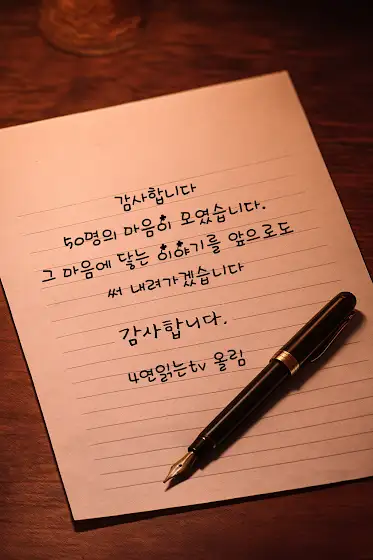 감사합니다
50명의 마음이 모였습니다.
그 마음에 닿는 이야기를 앞으로도
써 내려가겠습니다
감사합니다.
4연읽는tv 올림